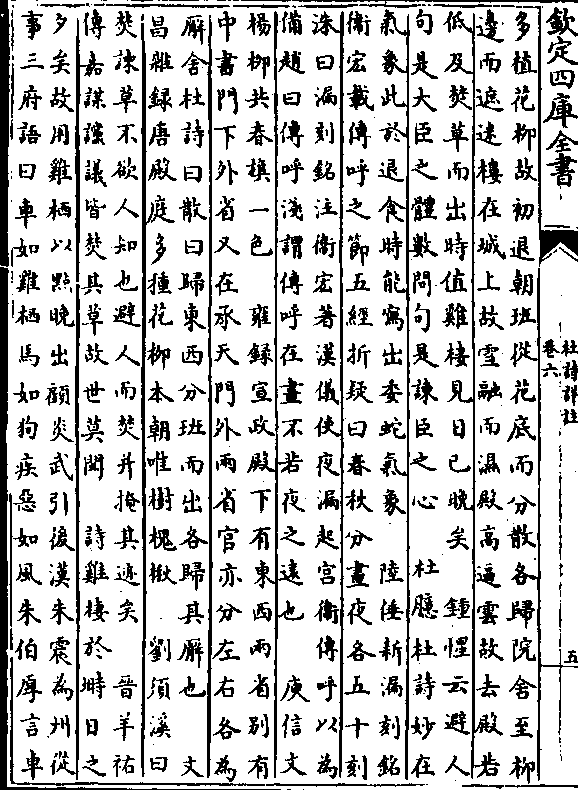 欽定四庫全書
杜詩詳注
卷六
五
多植花柳故初退朝班從花底而分散各歸院舍至柳
邊而遮迷樓在城上故雪融而濕殿高逼雲故去殿若
低及焚草而出時值雞棲見日已晚矣　鍾惺云避人
句是大臣之體數問句是諫臣之心　杜臆杜詩妙在
氣象此於退食時能寫出委蛇氣象　陸倕新漏刻銘
衛宏載傳呼之節五經折疑曰春秋分晝夜各五十刻
洙曰漏刻銘注衛宏著漢儀使夜漏起宮衛傳呼以為
備趙曰傳呼淺謂傳呼在晝不若夜之遠也　庾信文
楊柳共春旗一色　雍録宣政殿下有東西兩省别有
中書門下外省又在承天門外兩省官亦分左右各為
廨舍杜詩曰散曰歸東西分班而出各歸其廨也　文
昌雜録唐殿庭多種花柳本朝唯樹槐楸　劉須溪曰
焚諫草不欲人知也避人而焚并掩其迹矣　晉羊祜
傳嘉謀讜議皆焚其草故世莫聞　詩雞棲於塒日之
夕矣故用雞栖以點晚出顧炎武引後漢朱震為州從
事三府語曰車如雞栖馬如狗疾惡如風朱伯厚言車